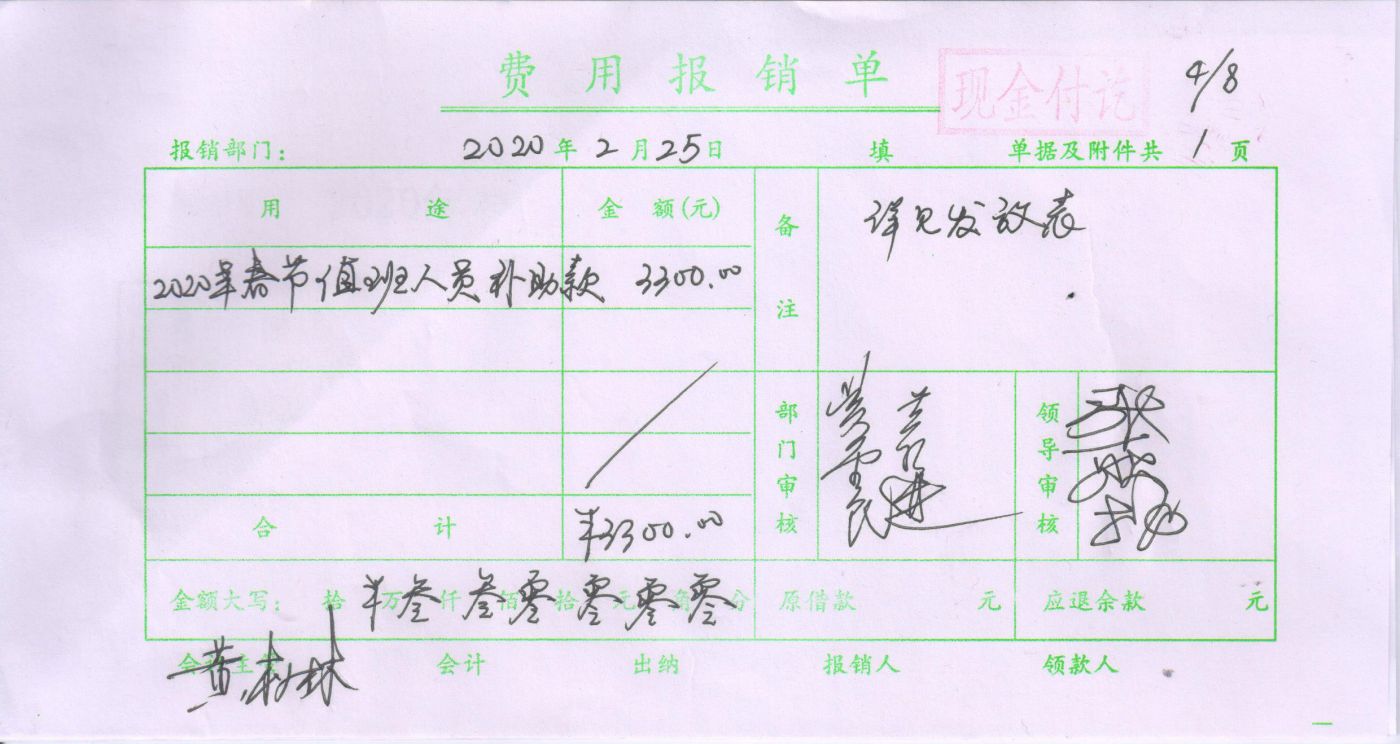 费用报销单
现金付讫
4/8
报销部门： 2020年2月25日 填 单据及附件共 1 页
用途 金额(元) 备注 详见发放表
2020年春节值班人员补助款 3300.00
部门审核 领导审核
合计 ¥3300.00
金额大写： 拾¥万叁仟叁佰零拾零元零角零分 原借款 元 应退余款 元
会计主管 会计 出纳 报销人 领款人